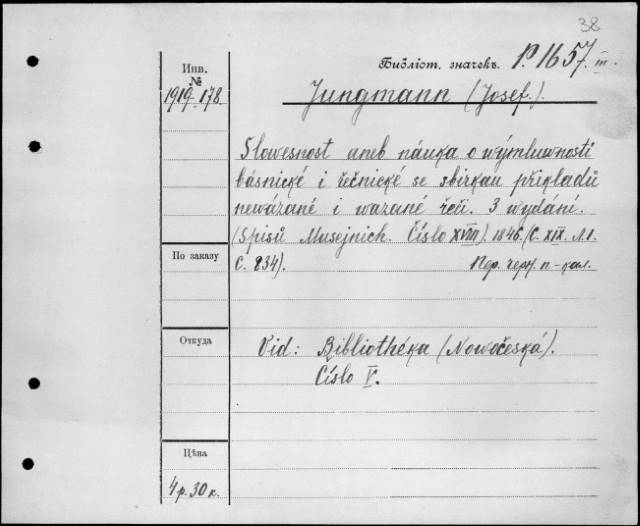 38
Библіот. значекъ. P. 1657. III.
Инв. №
1919-178
Jungmann (Josef.).
Slowesnost aneb náuka o wýmluwnosti
básnické i řečnické se sbirkau přjkladů
newázané i wazané řeči. 3 wydání.
(Spisů Musejnich. Číslo XVIII). 1846. (C. XIX. A.1.
C. 834). Пер. черн. п-кал.
По заказу
Откуда
Vid: Bibliothéka (Nowočeská).
Číslo V.
Цѣна
4 р. 30 к.